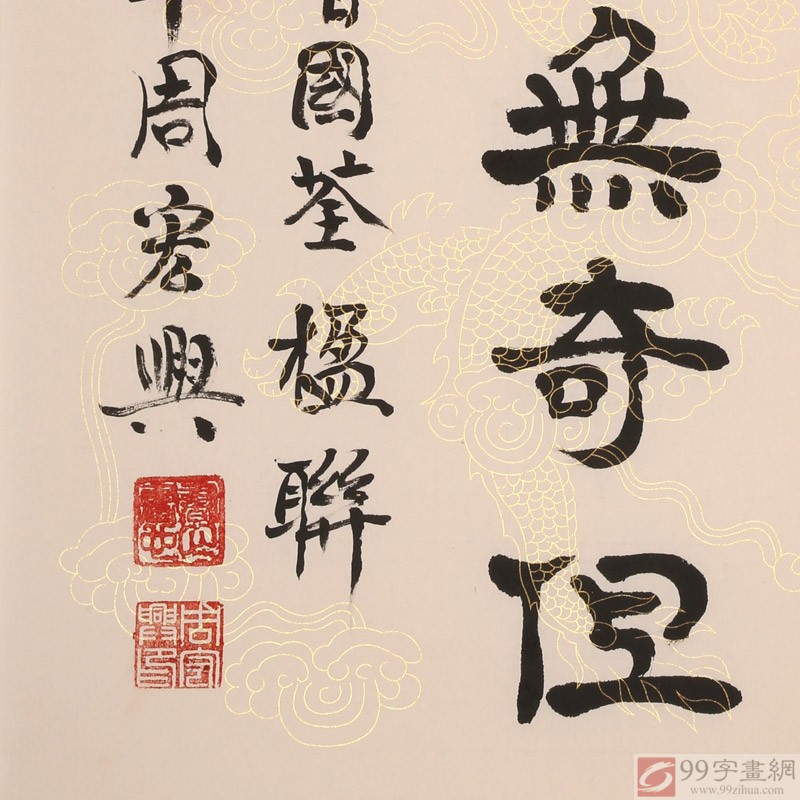 無奇但
國荃楹聯
周宏興
周宏
興印
99字畫網
www.99zihua.com